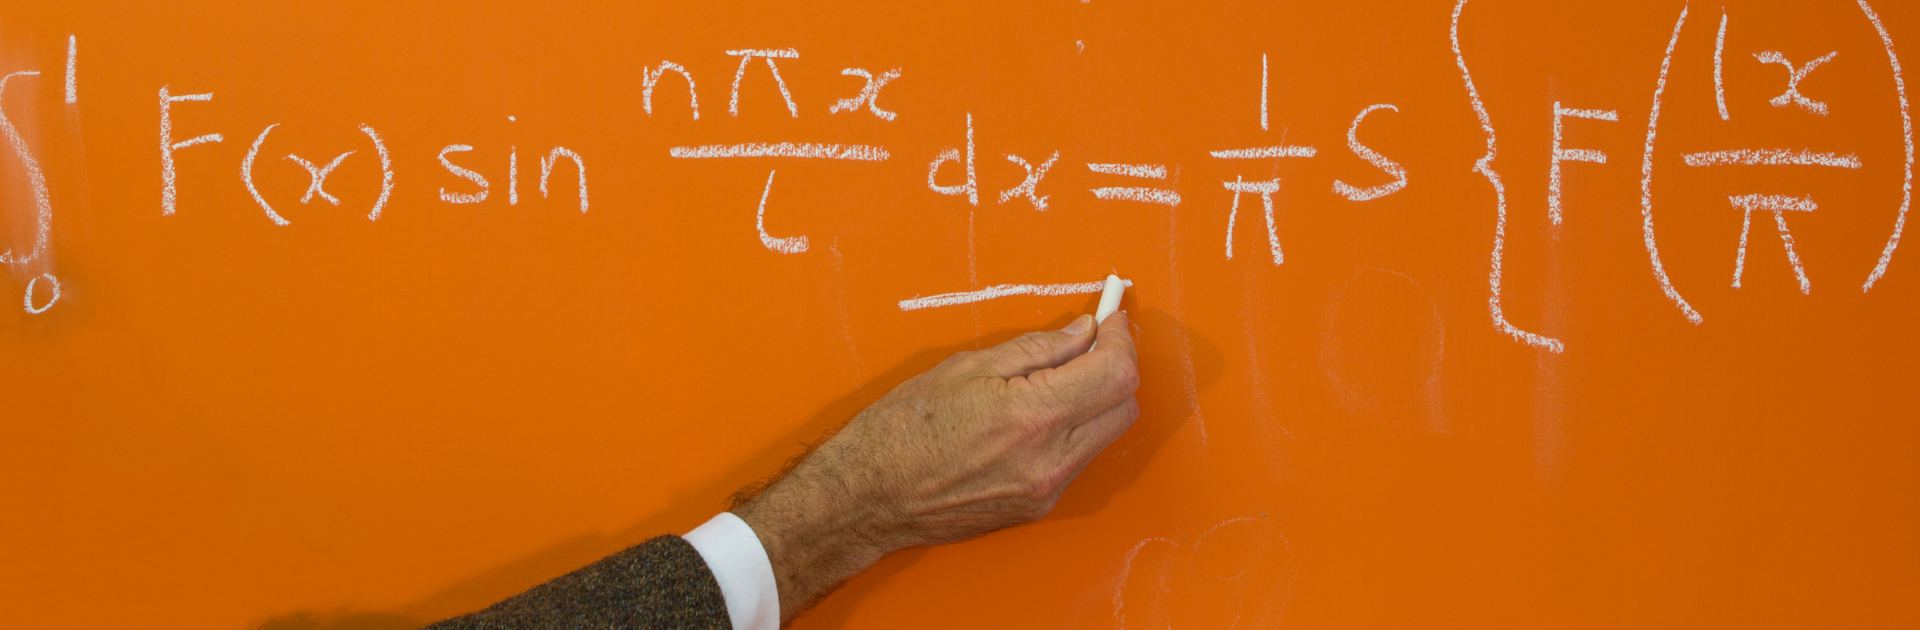 ∫₀¹ F(x) sin nπx/l dx = 1/π S { F( lx/π )